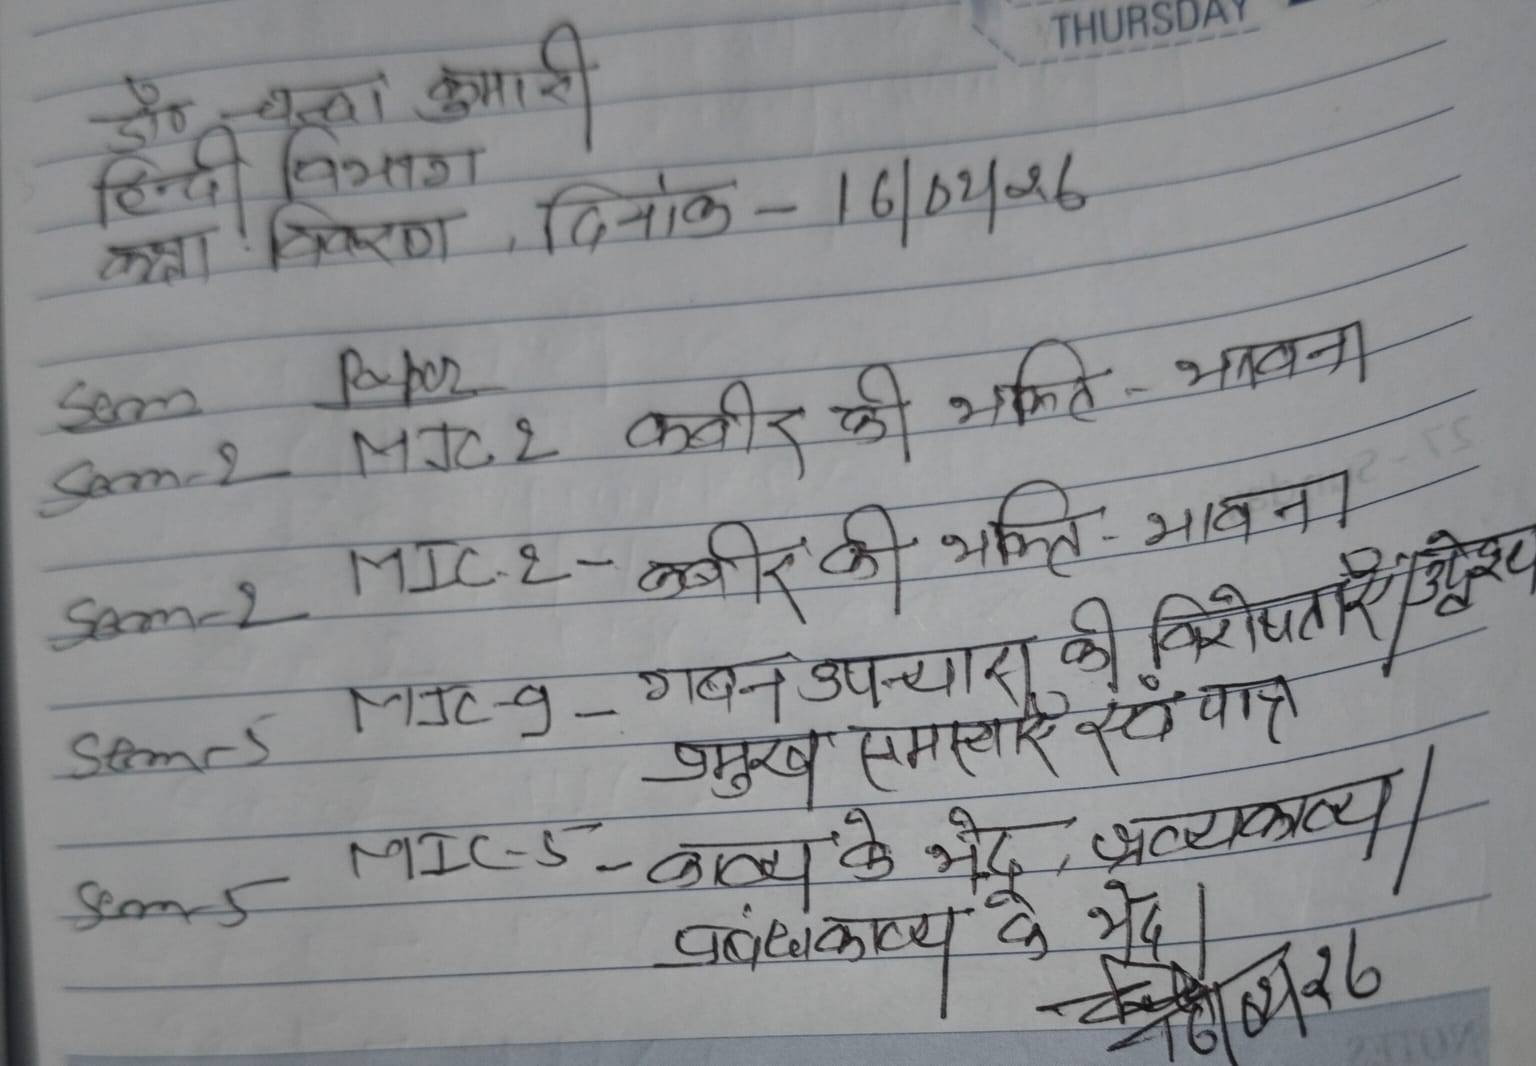 THURSDAY
डॉ० कुमारी
हिन्दी विभाग
कक्षा विवरण, दिनांक - 16/02/26
Sem Paper
Sem-2 MJC.2 कबीर की भक्ति - भावना
Sem-2 MIC.2 - कबीर की भक्ति - भावना
Sem-5 MJC-9 - गबन उपन्यास की विशेषताएँ/उद्देश्य
प्रमुख समस्याएँ एवं पात्र
Sem-5 MIC-5 - काव्य के भेद, श्रव्यकाव्य/
प्रबंधकाव्य के भेद|
16/02/26
NOTES